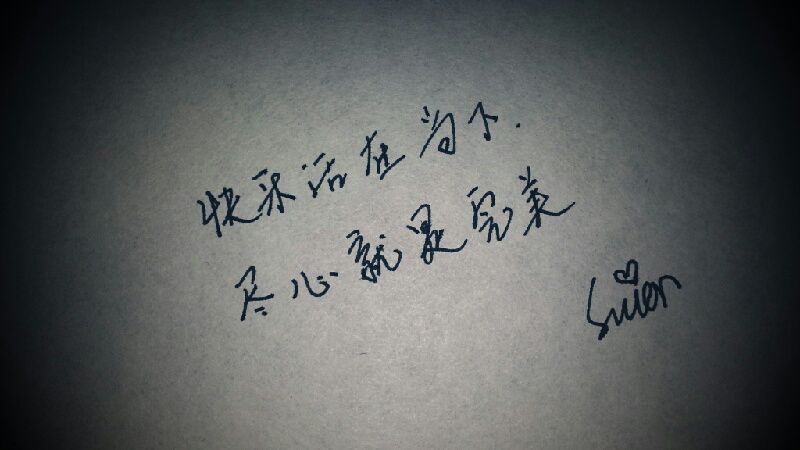 快乐活在当下.
尽心就是完美